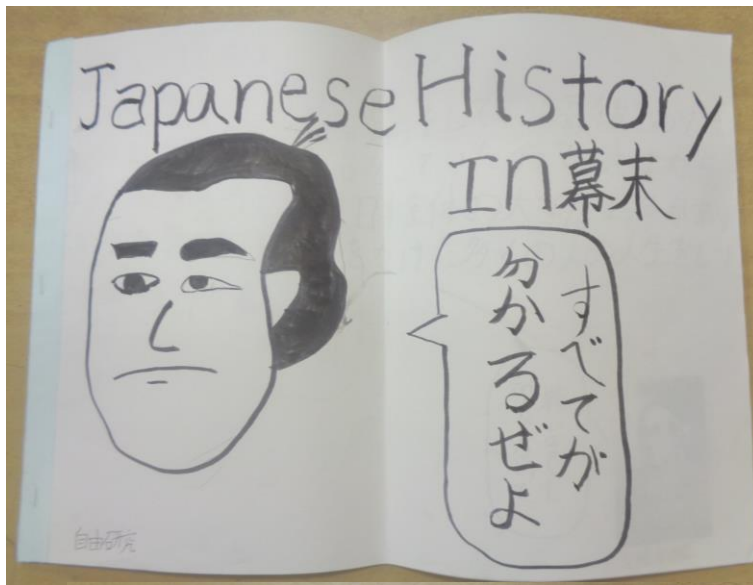 Japanese History
In幕末
すべてが
分かるぜよ
自由研究